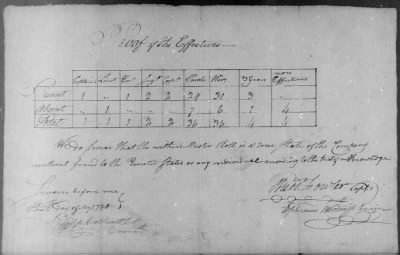 Proof of the Effectives
Captain Lieut Ens Sergt Corpl Privates War 3 Years non Effectives
Present 1 - 1 2 3 29 30 3 -
Absent - 1 - - - 7 6 1 4
Total 1 1 1 2 3 36 36 4 4
We do swear that the within Muster Roll is a true State of the Company
without fraud to the United States or any individual according to the best of our knowledge
Sworn before me
this Day of 1780
Theo Fowler Capt
Ensign